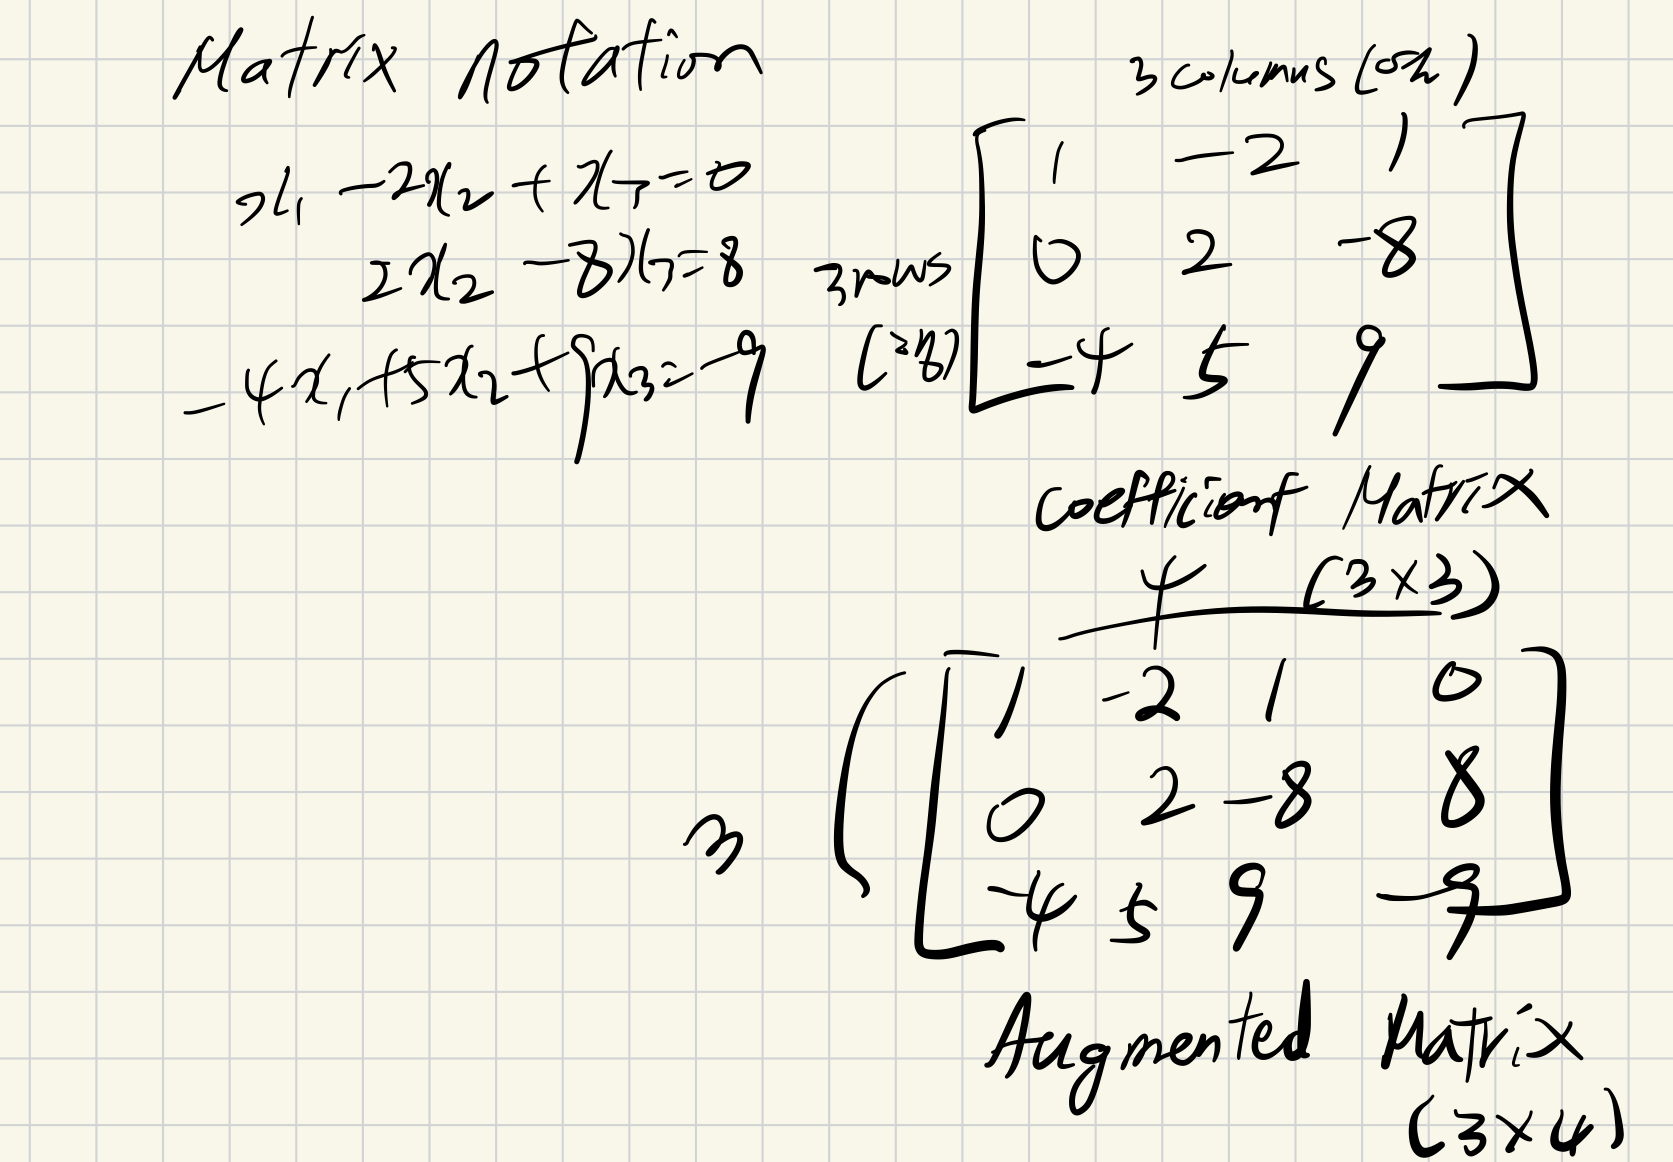 Matrix notation
x₁ -2x₂ + x₃ = 0
2x₂ -8x₃ = 8
-4x₁ +5x₂ + 9x₃ = -9
3 columns (
1 -2 1
3 rows
0 2 -8
-4 5 9
Coefficient Matrix
(3×3)
4
1 -2 1 0
3
0 2 -8 8
-4 5 9 -9
Augmented Matrix
(3×4)